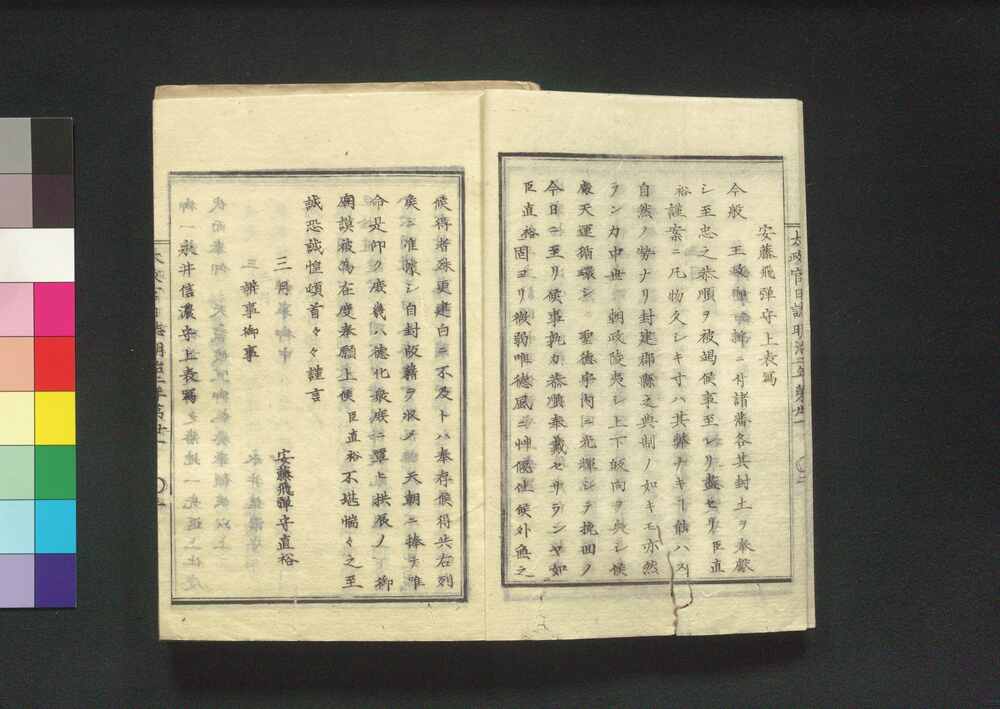 安藤飛彈守上表寫
今般 王政復古ニ付諸藩各其封土ヲ奉獻
シ至忠之恭順ヲ被竭候事至レリ盡セリ臣直
裕謹案ニ凡物久シキ寸ハ其弊ナキ能ハス
自然ノ勢ナリ封建郡縣之典制ノ如キモ亦然
ランカ中世 朝政陵夷シ上下皈向ヲ失シ候
處天運循環シ 聖德宇內ニ光輝シテ挽回ノ
今日ニ至リ候事孰カ恭順奉戴セサランヤ如
臣直裕固ヨリ微弱唯德風ニ艸偃仕候外無之
候得者殊更建白ニ不及トハ奉存候得共右列
矦ニ准縣シ自封版籍ヲ収メ 天朝ニ捧テ唯
命是仰ク庶幾ハ德化衆庶ニ覃ヒ拱辰ノ 御
廟謨被爲在度奉願上候臣直裕不堪惴々之至
誠恐誠惶頓首々々謹言
三月 安藤飛彈守直裕
辨事御中
一永井信濃守上表寫
太政官日誌明治二年第廿一